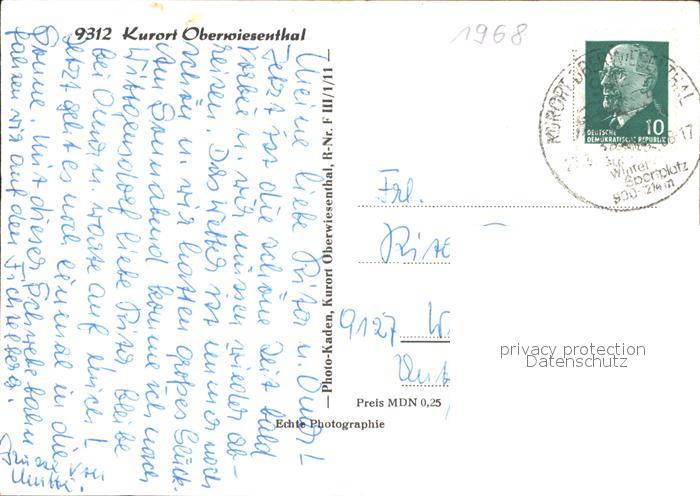 9312 Kurort Oberwiesenthal
1968
Meine liebe Rita u. Omi!
Jetzt ist die schöne Zeit bald
vorbei u. wir müssen wieder ab-
reisen. Das Wetter ist immer noch
schön u. wir hatten großes Glück.
Am Sonnabend komme ich nach
Wittgensdorf liebe Rita bleibe
bei Omi u. warte auf mich!
Jetzt geht es noch einmal in die
Sonne. Mit dieser Schwebebahn
fahren wir auf den Fichtelberg.
Mutti.
Photo-Kaden, Kurort Oberwiesenthal, R-Nr. F III/1/11
KURORT OBERWIESENTHAL
Wintersportplatz
900-1214 m
DEUTSCHE
DEMOKRATISCHE REPUBLIK
10
Frl.
9127 W
privacy protection
Datenschutz
Preis MDN 0,25
Echte Photographie